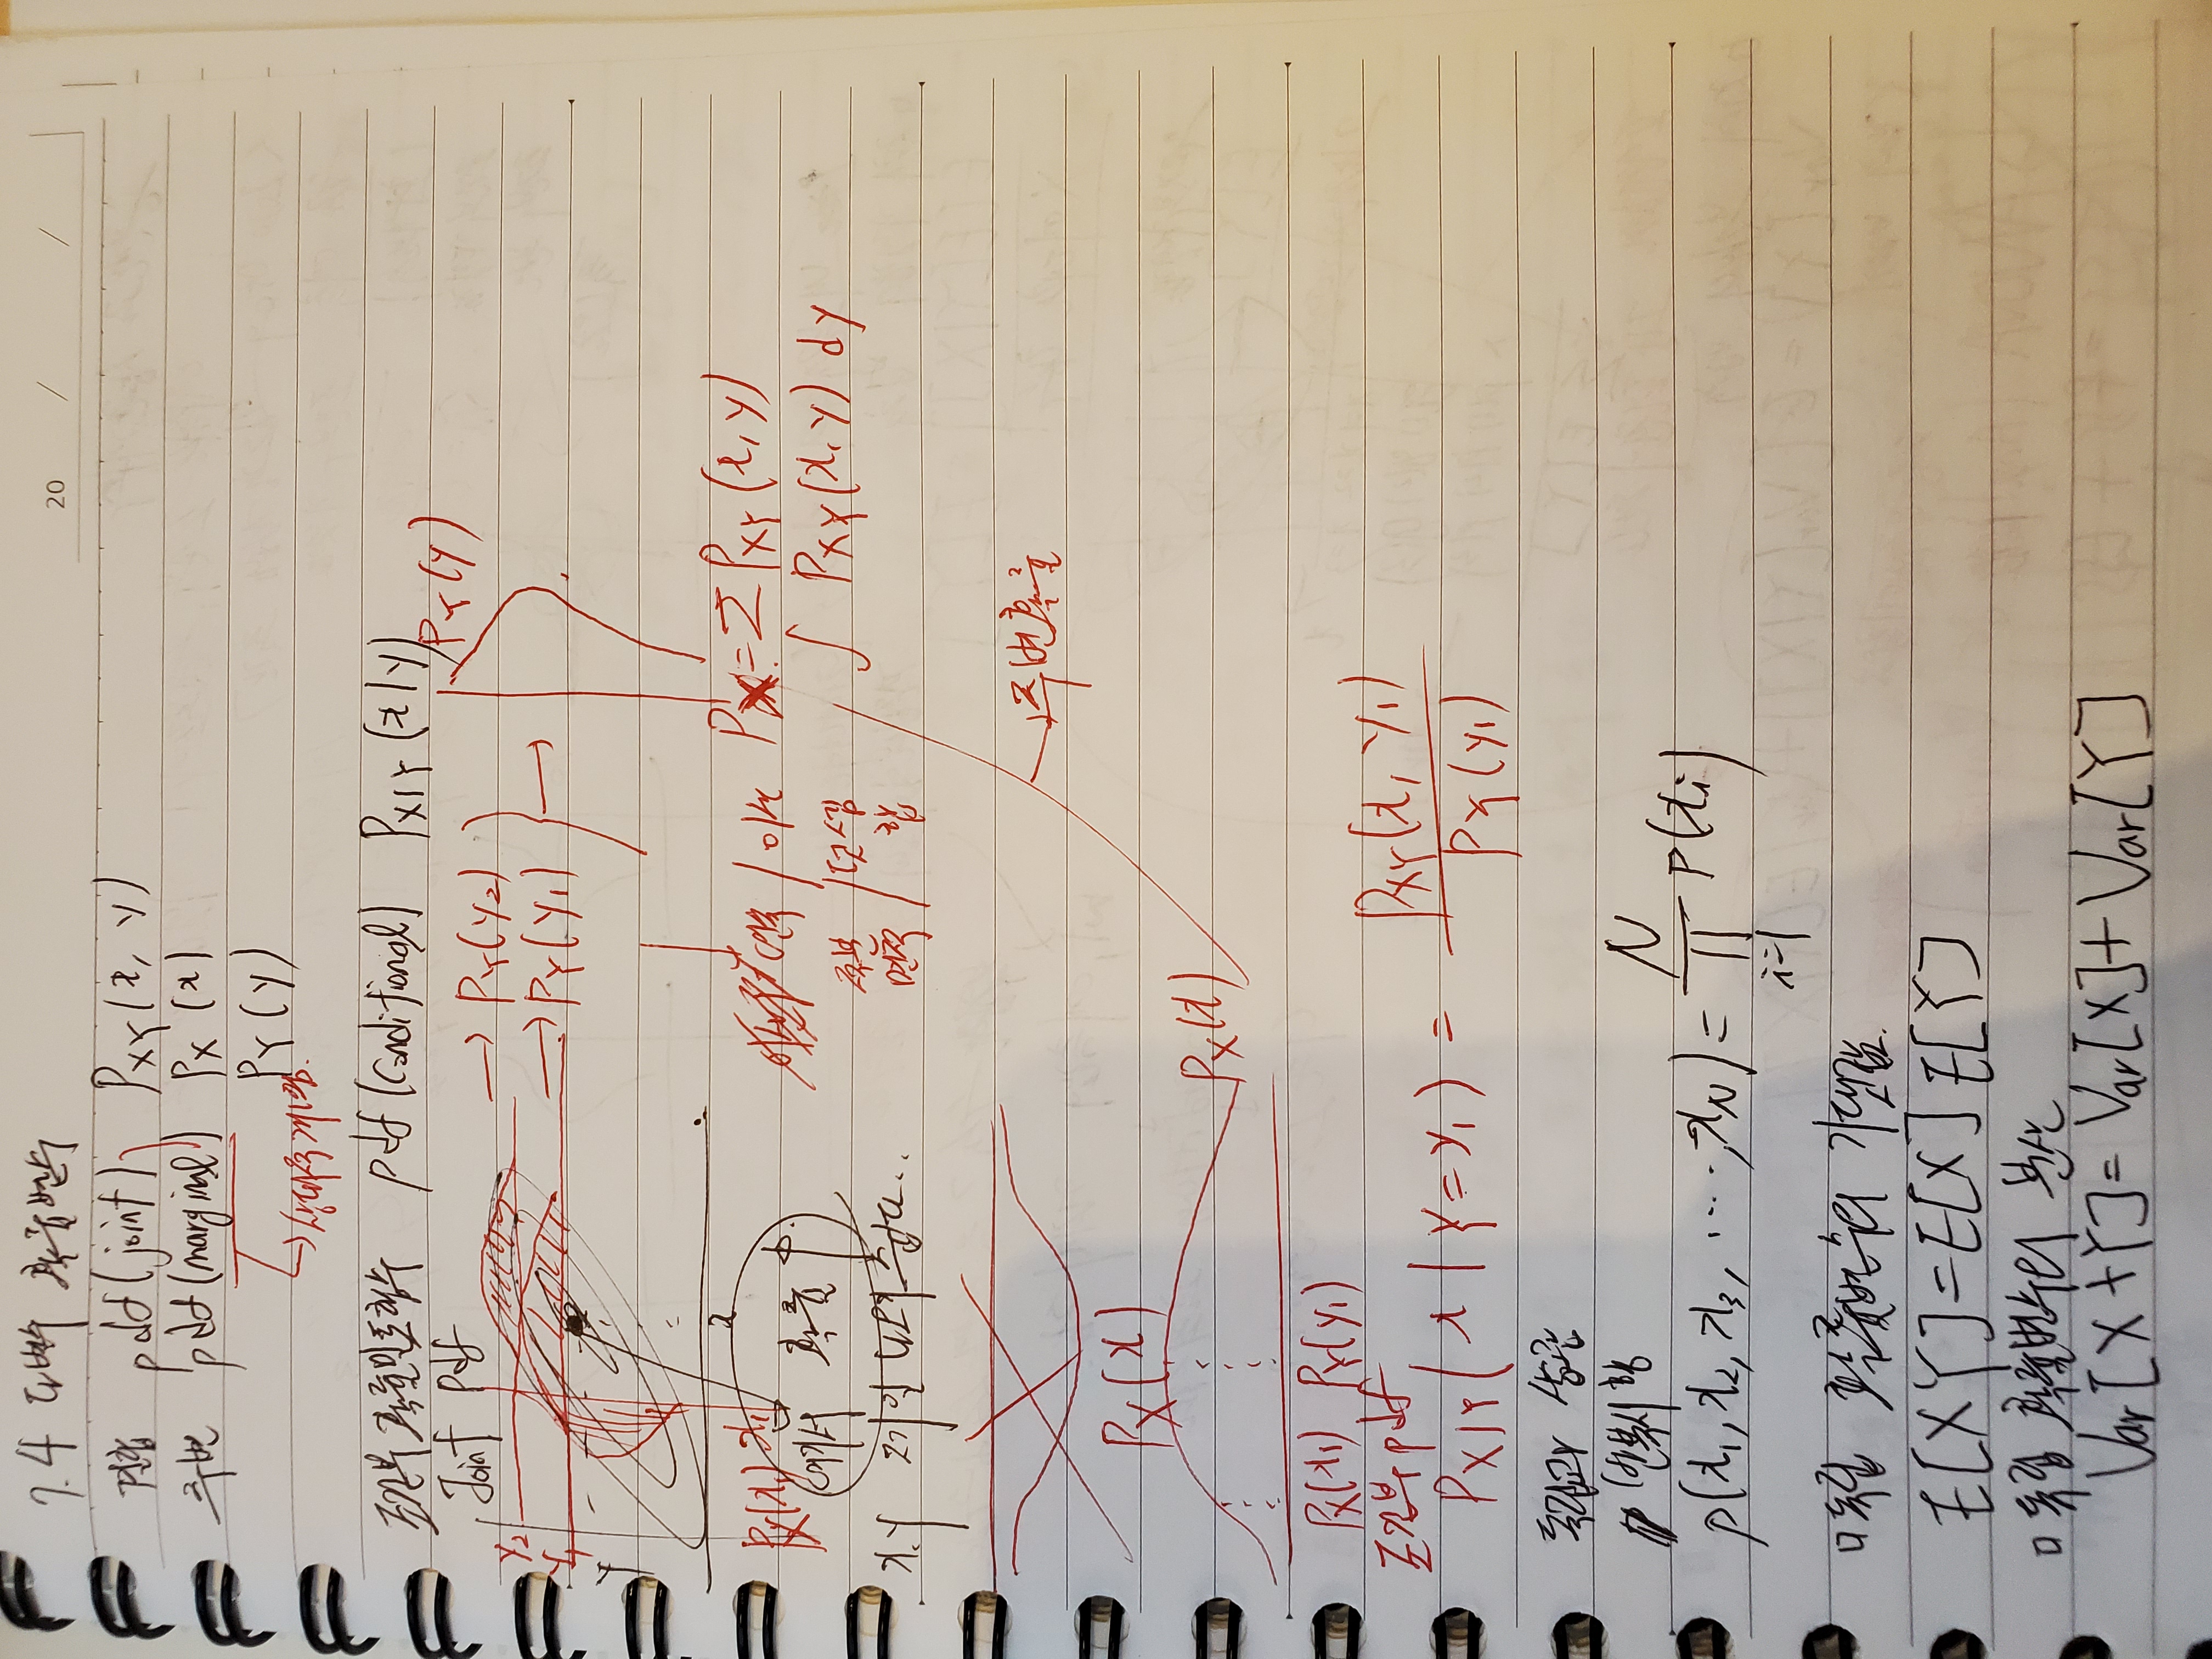 7.4 다변수 확률변수
20 / /
결합 pdf(joint) P_XY(x, y)
주변 pdf(marginal) P_X(x)
P_Y(y)
조건부 확률밀도함수 pdf(Conditional) P_X|Y(x|y)
Joint pdf
P_Y(y)
y2
→ P_Y(y2)
y1
→ P_Y(y1)
→
y
x
x1
여기서 확률
x.y 2개일
연속 / 이산
P_X = Σ P_XY(x, y)
∫ P_XY(x, y) dy
면적 / 합
주변확률
P_X(x)
P_X(x)
P_X(x1) P_Y(y1)
조건부 pdf
P_X|Y(x | Y=y1) = P_XY(x, y1) / P_Y(y1)
독립과 상관
반복시행
p(x1, x2, x3, ..., xN) = N Π i=1 P(xi)
□ 독립 확률변수의 기댓값.
E[XY]=E[X] E[Y]
□ 독립 확률변수의 분산
Var[X+Y]= Var[X]+Var[Y]